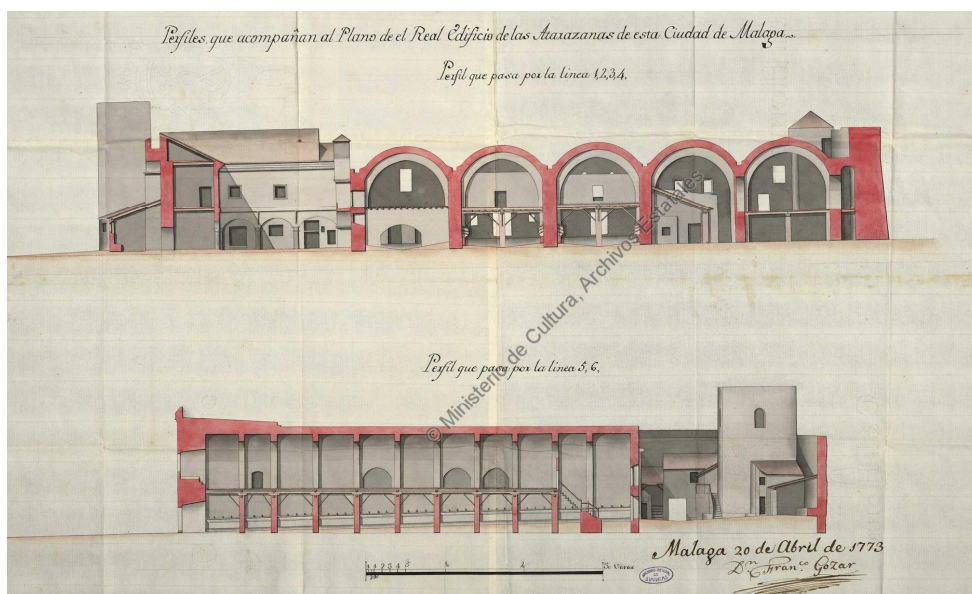 Perfiles, que acompañan al Plano de el Real Edificio de las Atarazanas de esta Ciudad de Malaga.
Perfil que pasa por la linea 1,2,3,4.
© Ministerio de Cultura, Archivos Estatales
Perfil que pasa por la linea 5, 6,
1 2 3 4 5
2
Malaga 20 de Abril de 1773
Dn. Franco. Gózar